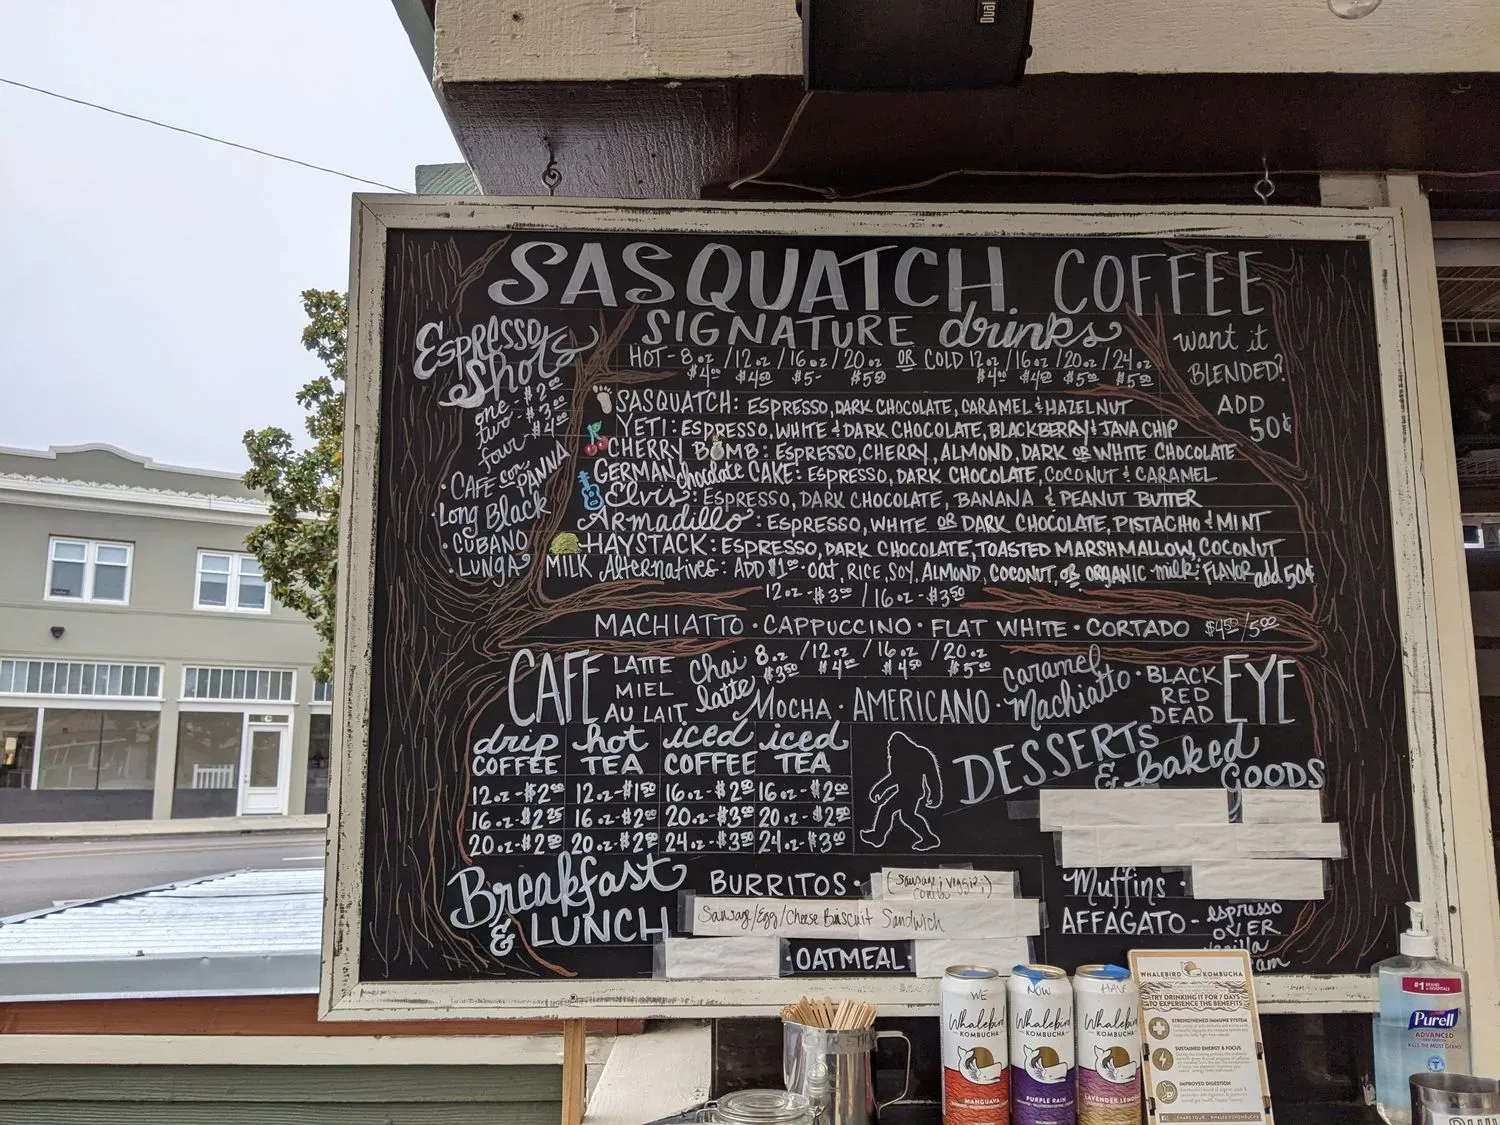 Dual
SASQUATCH COFFEE
SIGNATURE drinks
Espresso
Shots
one - $2.00
two - $3.00
four - $4.00
· CAFE con PANNA
· Long Black
· CUBANO
· LUNGA
HOT - 8oz / 12oz / 16oz / 20oz OR COLD 12oz / 16oz / 20oz / 24oz
$4.00 $4.50 $5- $5.50 $4.00 $4.50 $5.00 $5.50
want it
BLENDED?
ADD
50¢
SASQUATCH: ESPRESSO, DARK CHOCOLATE, CARAMEL & HAZELNUT
YETI: ESPRESSO, WHITE & DARK CHOCOLATE, BLACKBERRY & JAVA CHIP
CHERRY BOMB: ESPRESSO, CHERRY, ALMOND, DARK OR WHITE CHOCOLATE
GERMAN chocolate CAKE: ESPRESSO, DARK CHOCOLATE, COCONUT & CARAMEL
Elvis: ESPRESSO, DARK CHOCOLATE, BANANA & PEANUT BUTTER
Armadillo: ESPRESSO, WHITE OR DARK CHOCOLATE, PISTACHIO & MINT
HAYSTACK: ESPRESSO, DARK CHOCOLATE, TOASTED MARSHMALLOW, COCONUT
MILK Alternatives: ADD $1.00 · OAT, RICE, SOY, ALMOND, COCONUT, OR ORGANIC milk; FLAVOR add 50¢
12oz - $3.00 / 16oz - $3.50
MACHIATTO · CAPPUCCINO · FLAT WHITE · CORTADO $4.50/5.00
8oz / 12oz / 16oz / 20oz
$3.50 $4.00 $4.50 $5.00
CAFE LATTE
MIEL
AU LAIT
Chai
latte
MOCHA · AMERICANO ·
Caramel
Machiatto
· BLACK
RED
DEAD
EYE
drip
COFFEE
12oz - $2.00
16oz - $2.25
20oz - $2.50
hot
TEA
12oz - $1.50
16oz - $2.00
20oz - $2.50
iced
COFFEE
16oz - $2.50
20oz - $3.00
24oz - $3.50
iced
TEA
16oz - $2.00
20oz - $2.50
24oz - $3.00
DESSERTS
& baked
GOODS
Muffins ·
AFFAGATO - espresso
OVER
Breakfast
& LUNCH
BURRITOS · (sausage; veggie;)
combo
Sausage/Egg/Cheese Biscuit Sandwich
· OATMEAL ·
WE
NOW
HAVE
Whalebird
KOMBUCHA
MANGUAVA
Whalebird
KOMBUCHA
PURPLE RAIN
Whalebird
KOMBUCHA
WHALEBIRD KOMBUCHA
TRY DRINKING IT FOR 7 DAYS
TO EXPERIENCE THE BENEFITS
STRENGTHENED IMMUNE SYSTEM
SUSTAINED ENERGY & FOCUS
IMPROVED DIGESTION
#1 BRAND
Purell
ADVANCED
KILLS THE MOST GERMS